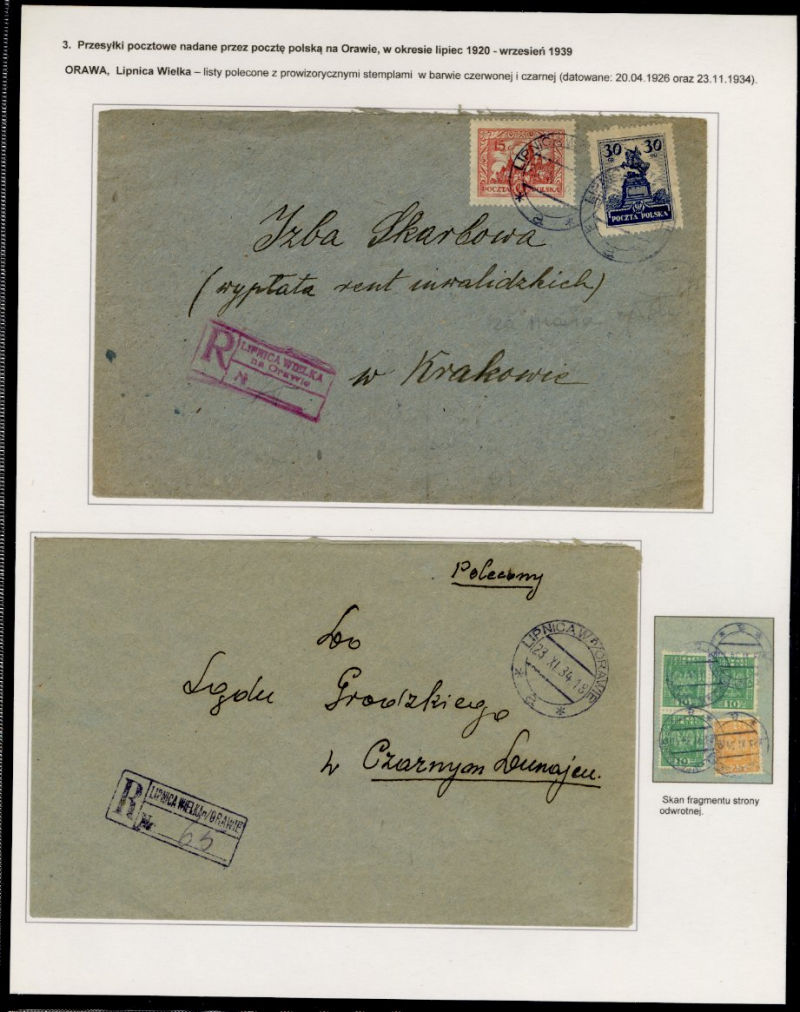 3. Przesyłki pocztowe nadane przez pocztę polską na Orawie, w okresie lipiec 1920 - wrzesień 1939
ORAWA, Lipnica Wielka – listy polecone z prowizorycznymi stemplami w barwie czerwonej i czarnej (datowane: 20.04.1926 oraz 23.11.1934).
15
POCZTA POLSKA
LIPNICA
a
30 30
POCZTA POLSKA
a
Izba Skarbowa
(wypłata rent inwalidzkich)
za
w Krakowie
R
LIPNICA WIELKA
na Orawie
N
Polecony
LIPNICA W/ORAWIE
23 XI. 34 18
a
Do
Sądu Grodzkiego
w Czarnym Dunajcu.
R
LIPNICA WIELKA n/ORAWIE
Nr 65
10
10
10
Skan fragmentu strony
odwrotnej.